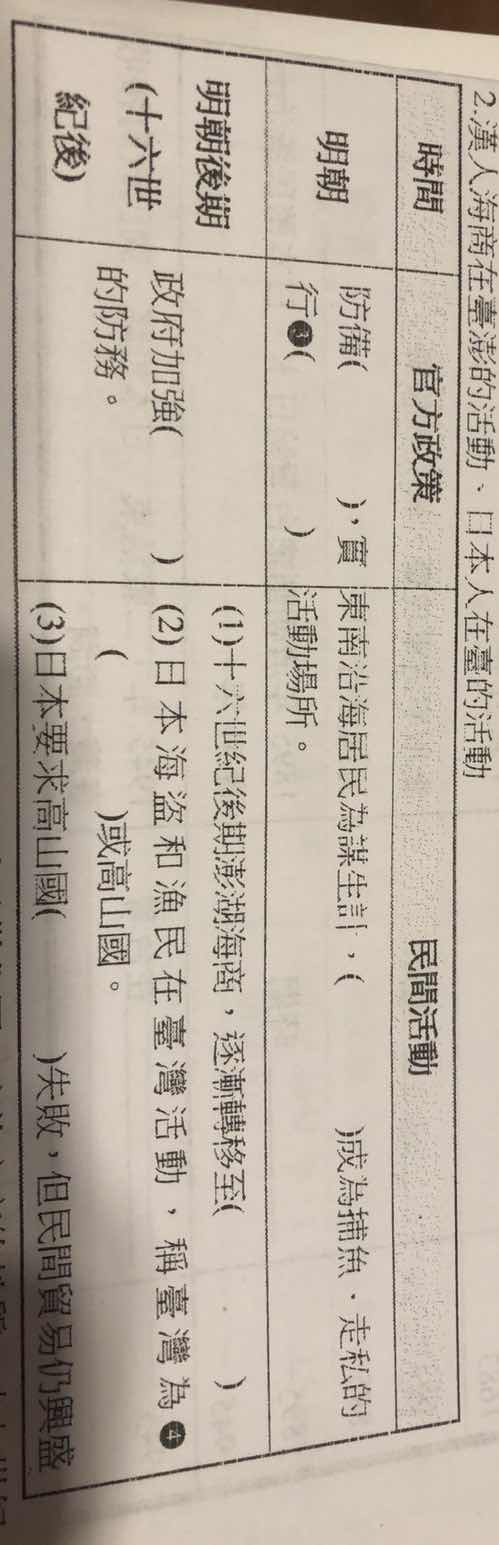 2.漢人海商在臺澎的活動、日本人在臺的活動
時間 官方政策 民間活動
明朝
防備( )，實
行❸( )
東南沿海居民為謀生計，( )成為捕魚、走私的
活動場所。
明朝後期
(十六世
紀後)
政府加強( )
的防務。
(1)十六世紀後期澎湖海商，逐漸轉移至( )
(2)日本海盜和漁民在臺灣活動，稱臺灣為❹
( )或高山國。
(3)日本要求高山國( )失敗，但民間貿易仍興盛